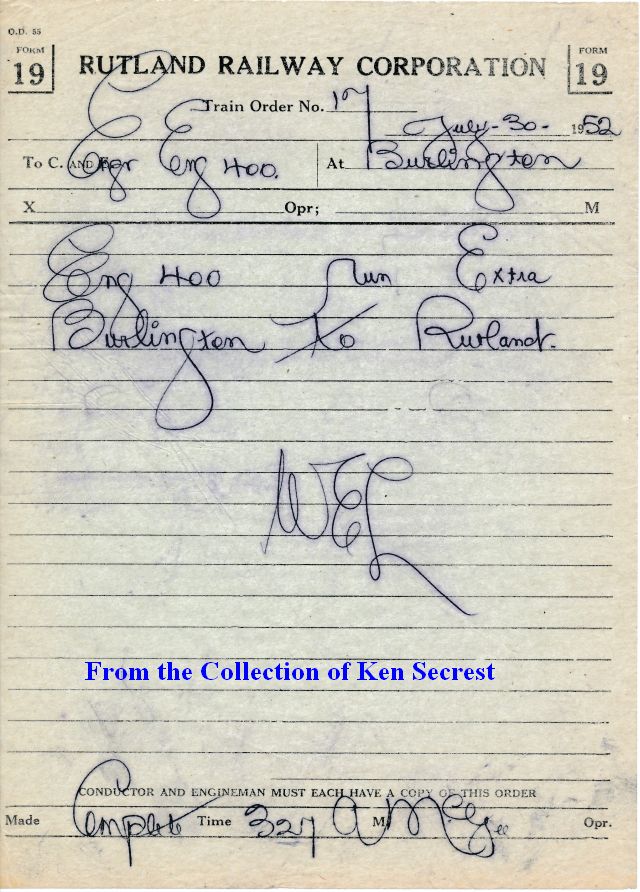 O.D. 55
FORM 19 RUTLAND RAILWAY CORPORATION FORM 19
Train Order No. 17
July-30- 1952
To C. AND E Eng 400. At Burlington
X Opr; M
Eng 400 run Extra
Burlington to Rutland.
WEL
From the Collection of Ken Secrest
CONDUCTOR AND ENGINEMAN MUST EACH HAVE A COPY OF THIS ORDER
Made Complete Time 327 A M. McGee Opr.